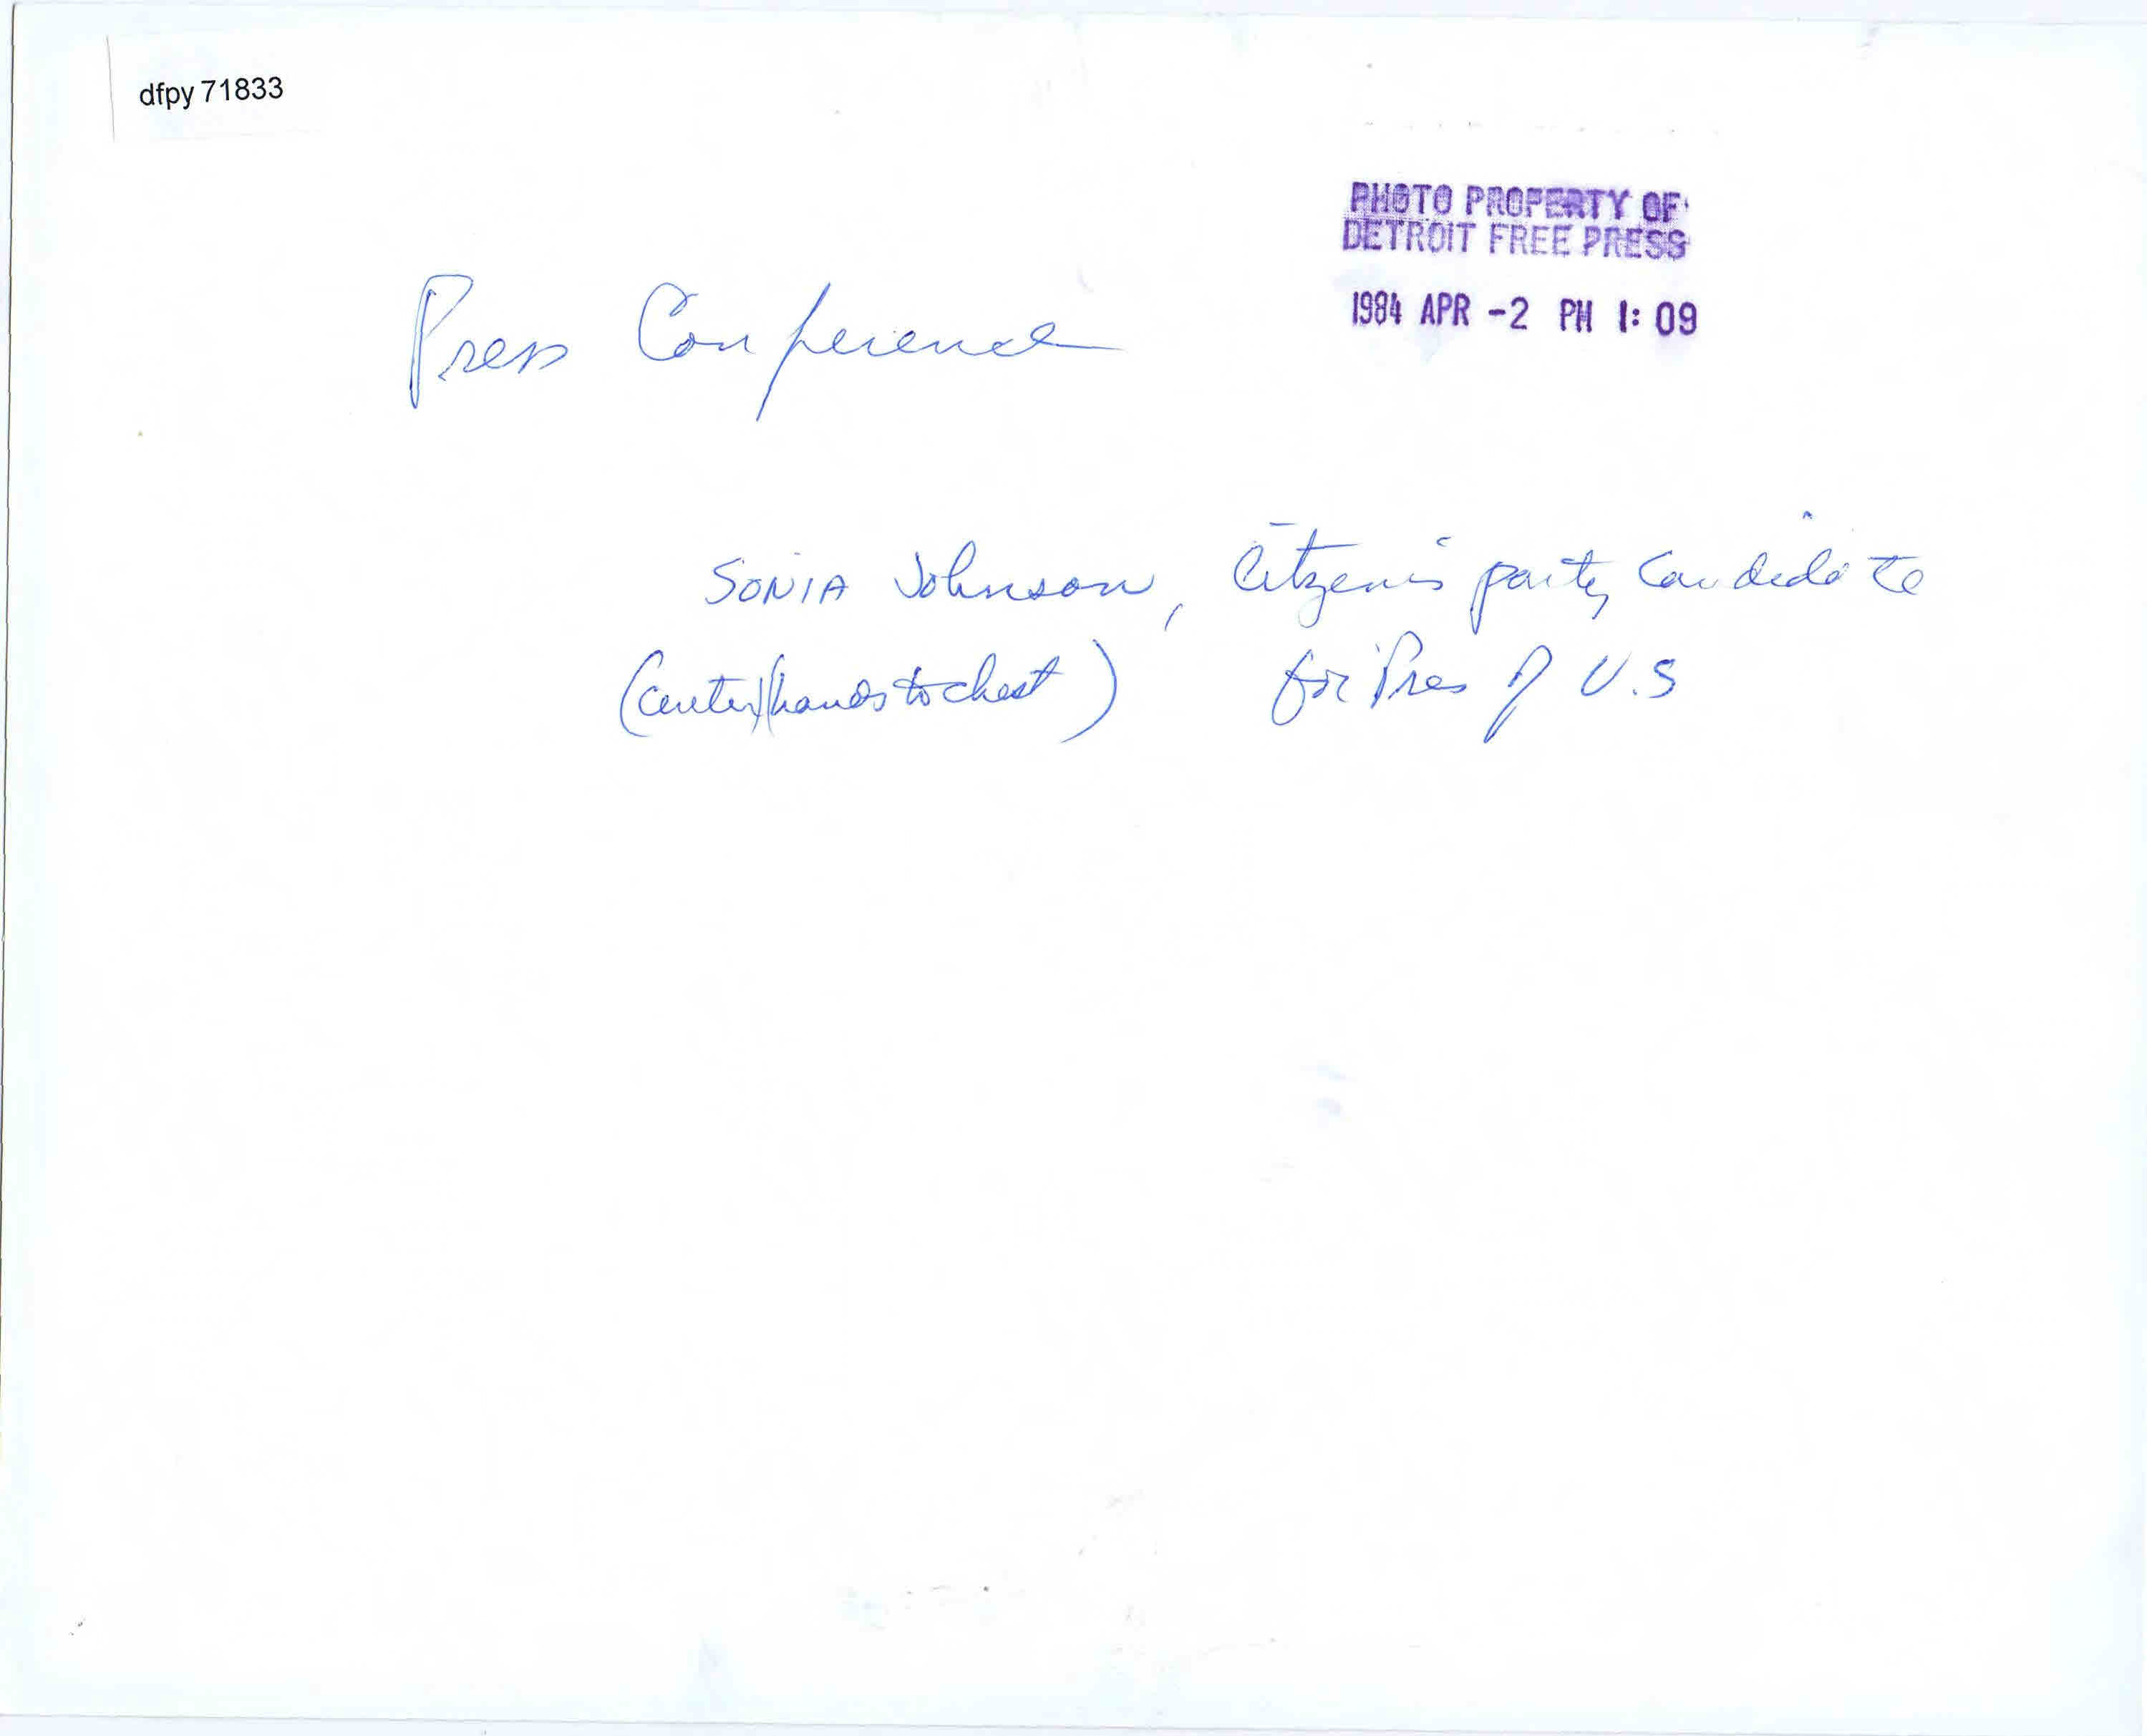 dfpy 71833
PHOTO PROPERTY OF
DETROIT FREE PRESS
1984 APR -2 PM 1:09
Press Conference
SONIA Johnson, Citizen's party candidate
(center)(hands to chest) for Pres of U.S